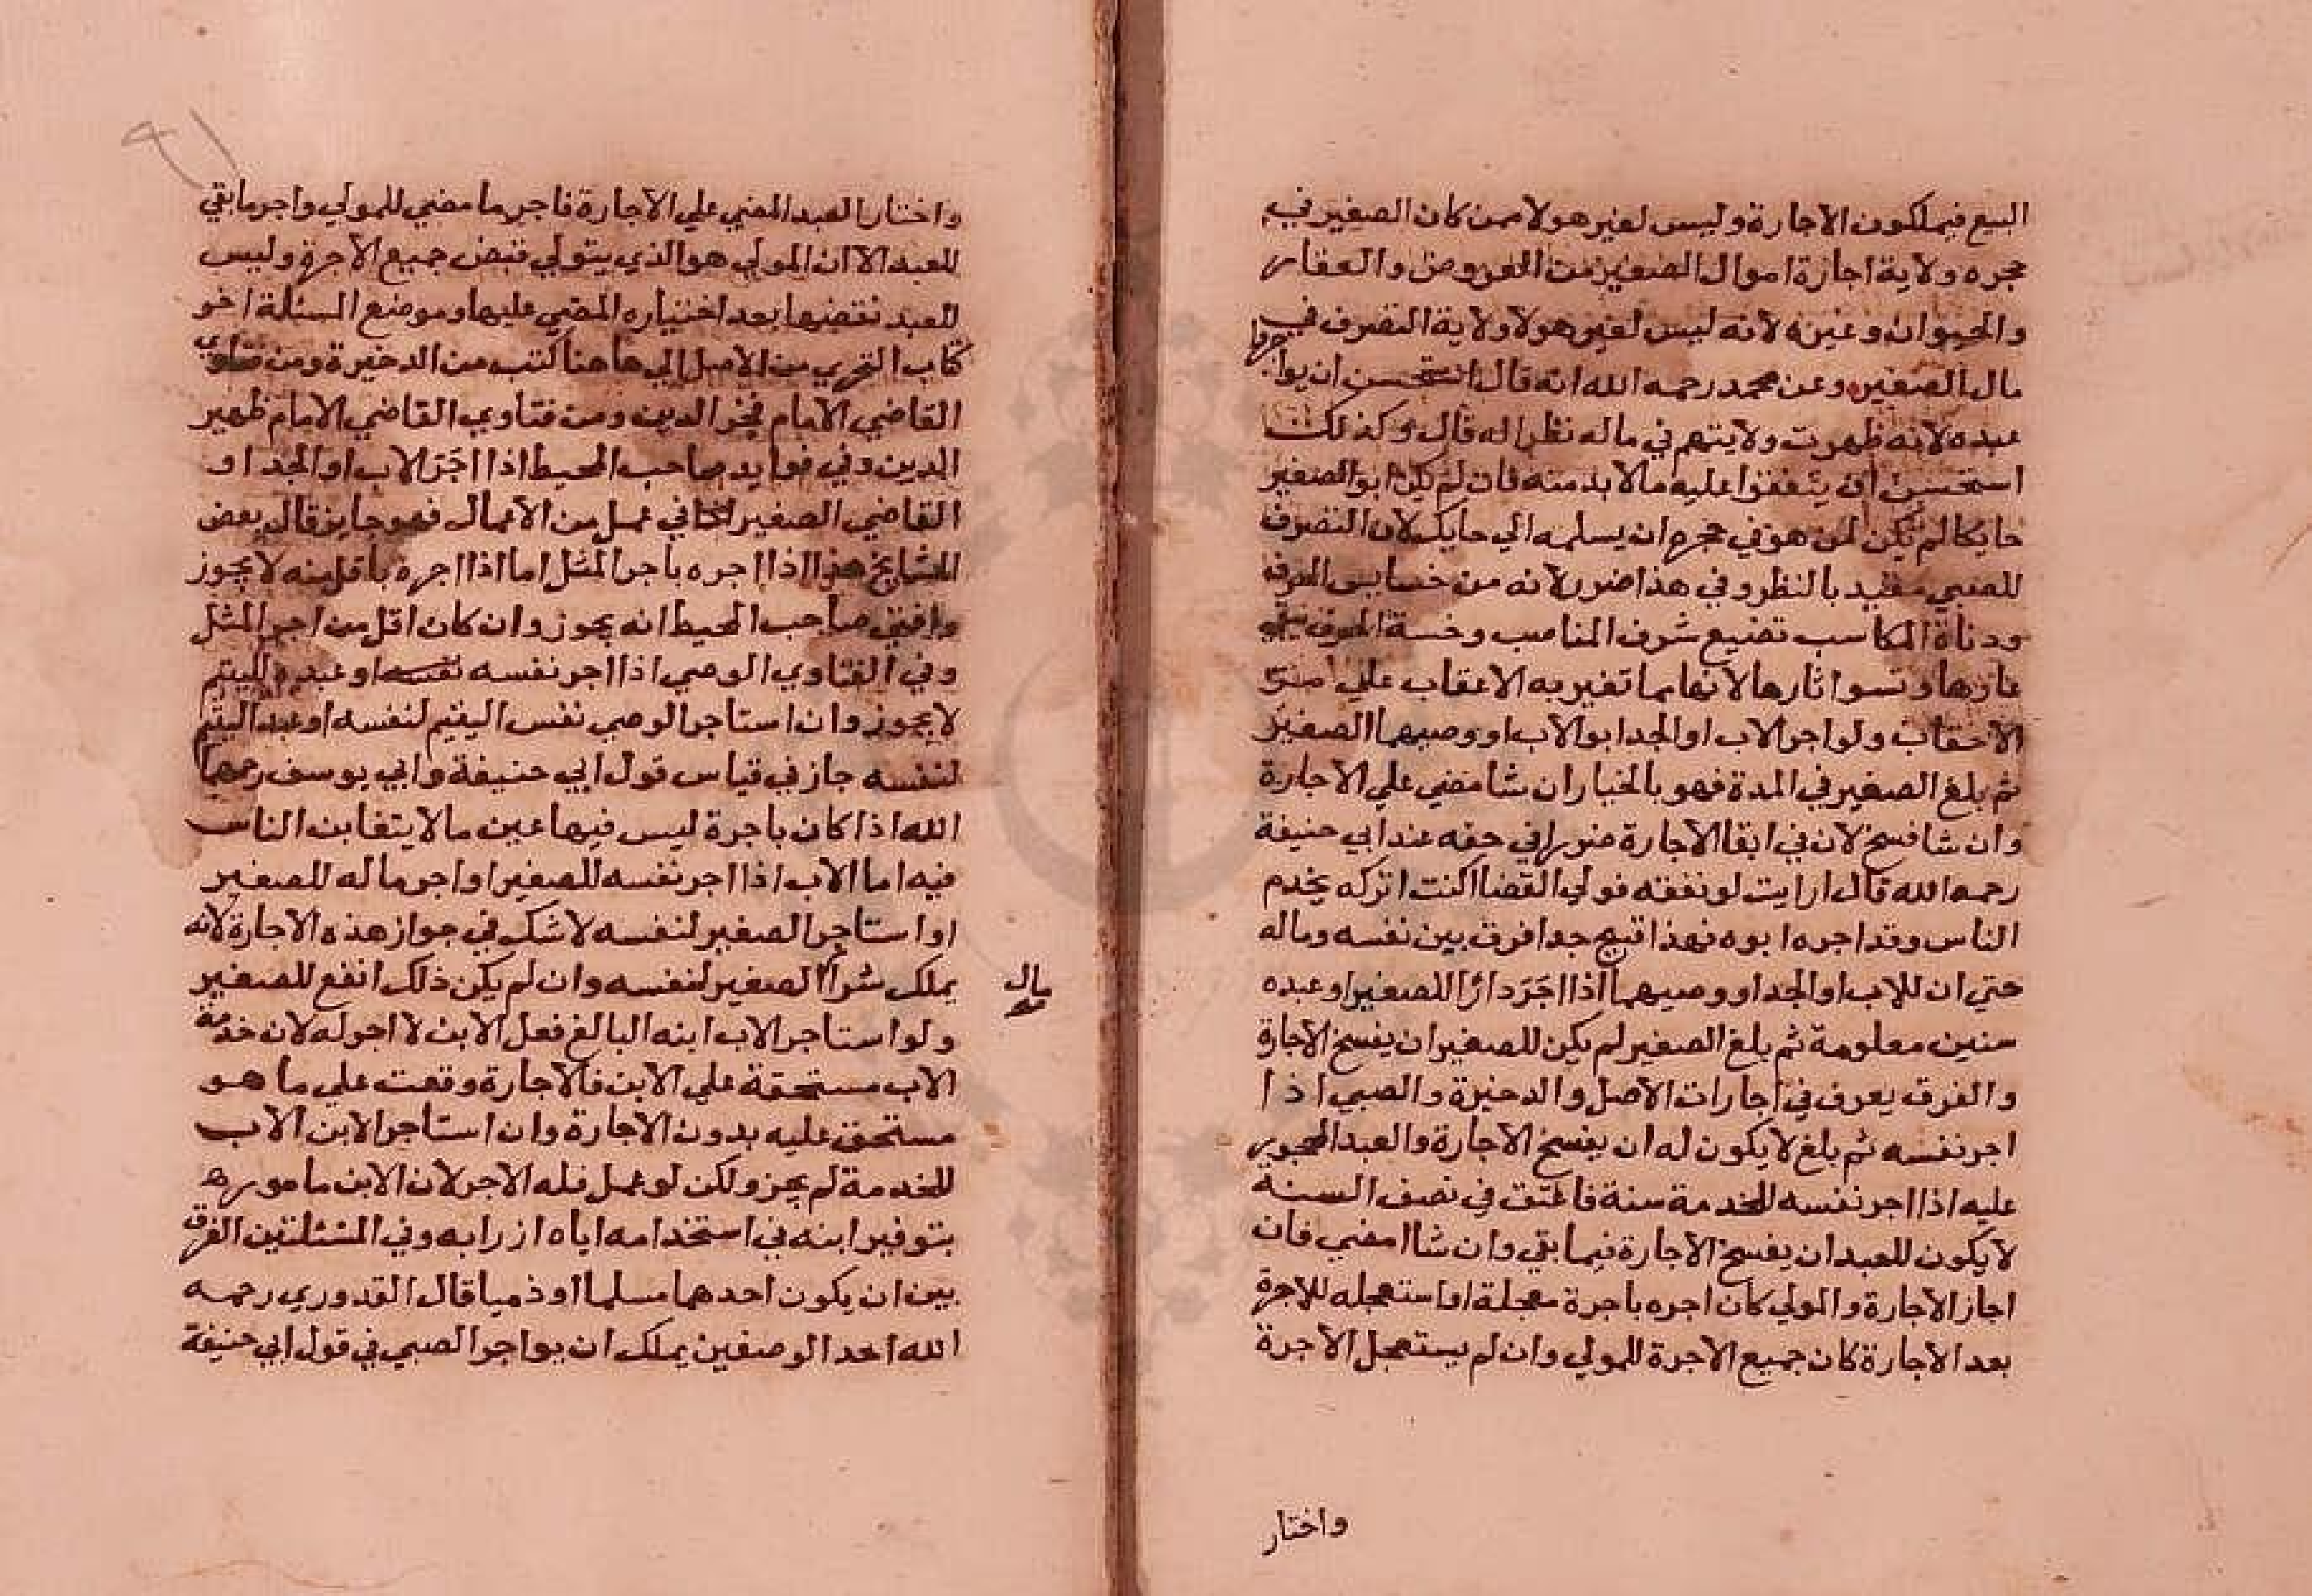 البيع فيملكون الاجارة وليس لغير هولا ممن كان الصغير في
حجره ولاية اجارة اموال الصغير من العروض والعقار
والحيوان وغيره لانه ليس لغير هولا ولاية التصرف في
مال الصغير وعن محمد رحمه الله انه قال استحسن ان يواجرها
عبده لانه ظهرت ولايتهم في ماله نظرا له قال وكذلك
استحسن ان ينفقوا عليه مالا بد منه فان لم يكن ابو الصغير
حايكا لم يكن لمن هو في حجره ان يسلمه الي حايك لان التصرف
للصبي مقيد بالنظر وفي هذا ضرر لانه من خسايس الحرف
ودناة المكاسب تضيع شرف المناصب وخسة الحرف
عارها وتسوا ثارها لانها مما تغير به الاعقاب علي
الاحقاب ولو اجر الاب او الجد ابو الاب او وصيهما الصغير
ثم بلغ الصغير في المدة فهو بالخيار ان شا مضي علي الاجارة
وان شا فسخ لان في ابقا الاجارة ضررا في حقه عند ابي حنيفة
رحمه الله قال ارايت لو نفقه فولي القضا اكنت اتركه يخدم
الناس وقد اجره ابوه فهذا قبيح جدا فرق بين نفسه وماله
حتي ان للاب او الجد او وصيهما اذا اجَرَ دارًا للصغير او عبده
سنين معلومة ثم بلغ الصغير لم يكن للصغير ان يفسخ الاجارة
والفرق يعرف في اجارات الاصل والدخيرة والصبي اذا
اجر نفسه ثم بلغ لا يكون له ان يفسخ الاجارة والعبد المحجور
عليه اذا اجر نفسه للخدمة سنة فاعتق في نصف السنة
لا يكون للعبد ان يفسخ الاجارة فيما بقي وان شا امضي فان
اجاز الاجارة والمولي كان اجره باجرة معجلة او استعجله للاجرة
بعد الاجارة كان جميع الاجرة للمولي وان لم يستعجل الاجرة
واختار
واختار العبد المضي علي الاجارة فاجر ما مضي للمولي واجر ما بقي
للعبد الا ان المولي هو الذي يتولي قبض جميع الاجرة وليس
للعبد نقضها بعد اختياره المضي عليها وموضع المسئلة اخر
كتاب التحري من الاصل الي هاهنا كتب من الدخيرة ومن فتاوي
القاضي الامام فخر الدين ومن فتاوي القاضي الامام ظهير
الدين وفي فوايد صاحب المحيط اذا اجَرَ الاب او الجد او
القاضي الصغير في عمل من الاعمال فهو جايز قال بعض
المشايخ هذا اذا اجره باجر المثل اما اذا اجره باقل منه لا يجوز
وافتي صاحب المحيط انه يجوز وان كان اقل من اجر المثل
وفي الفتاوي الوصي اذا اجر نفسه او عبده لليتيم
لا يجوز وان استاجر الوصي نفس اليتيم لنفسه او عبد اليتيم
لنفسه جاز في قياس قول ابي حنيفة وابي يوسف رحمهما
الله اذا كان باجرة ليس فيها غبن مالا يتغابن الناس
فيه اما الاب اذا اجر نفسه للصغير او اجر ماله للصغير
او استاجر الصغير لنفسه لا شك في جواز هذه الاجارة لانه
يملك شرا الصغير لنفسه وان لم يكن ذلك انفع للصغير
مال
ولو استاجر الاب ابنه البالغ ففعل الابن لا اجر له لان خدمة
الاب مستحقة علي الابن فالاجارة وقعت علي ما هو
مستحق عليه بدون الاجارة وان استاجر الابن الاب
للخدمة لم يجز ولكن لو عمل فله الاجر لان الابن مامور
بتوفير ابنه في استخدامه اياه ازرا به وفي المسئلتين الفرق
بين ان يكون احدهما مسلما او ذميا قال القدوري رحمه
الله احد الوصفين يملك ان يواجر الصبي في قول ابي حنيفة